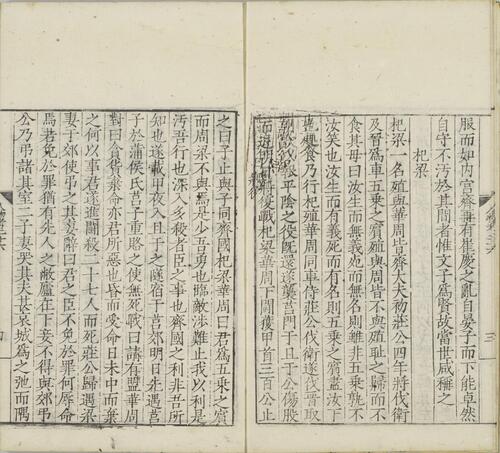 服而如内宫齊再有崔慶之亂自晏子而下能卓然
自守不汚於其間者惟文子爲賢故當世咸稱之
杞梁
杞梁一名殖與華周皆齊大夫初莊公四年將伐衛
及晉爲車五乗之賓殖與周皆不與殖耻之歸而不
食其母曰汝生而無義死而無名則雖非五乗孰不
汝笑也汝生而有義死而有名則五乗之賓盡汝下
也趣食乃行杞殖華周同車侍莊公伐衛遂伐晉取
朝歌以報平陰之役旣還遂襲莒門于且于公傷股
而退 復戰杞梁華周下鬬獲甲首三百公止
之曰子止與子同齊國杞梁華周曰君爲五乗之賓
而周梁不與焉是少吾勇也臨敵涉難止我以利是
汚吾行也深入多殺者臣之事也齊國之利非吾所
知也遂載甲夜入且于之隧宿于莒郊明日先遇莒
子於蒲侯氏莒子重賂之使無死戰曰請有盟華周
對曰貪貨棄命亦君所惡也昏而受命日未中而棄
之何以事君遂進鬬殺二十七人而死莊公歸遇梁
妻于郊使弔之其妻辭曰君之臣不免於罪何辱命
焉若免於罪猶有先人之敝廬在下妾不得與郊弔
公乃弔諸其室二子妻哭其夫甚哀城爲之弛而隅